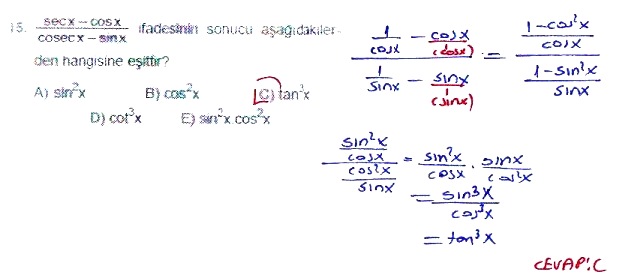 15. (secx − cosx)/(cosecx − sinx) ifadesinin sonucu aşağıdakiler-
den hangisine eşittir?
A) sin²x B) cos²x C) tan³x
D) cot³x E) sin²x.cos²x
(1/cosx − cosx/1 (cosx))/(1/sinx − sinx/1 (sinx)) = ((1−cos²x)/cosx)/((1−sin²x)/sinx)
(sin²x/cosx)/(cos²x/sinx) = sin²x/cosx . sinx/cos²x
= sin³x/cos³x
= tan³x
CEVAP: C